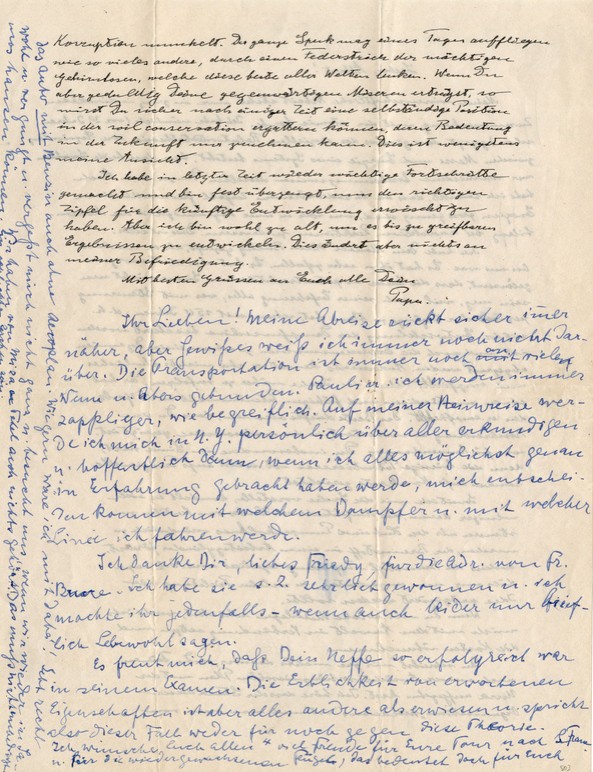 Korruption munkelt. Die ganze Spuk mag eines Tages auffliegen
wie so vieles andere, durch einen Federstrich der mächtigen
Gehirnlosen, welche diese beste aller Welten lenken. Wenn Du
aber geduldig Deine gegenwärtigen Miseren erträgst, so
wirst Du sicher nach einiger Zeit eine selbständige Position
in der soil conservation ergattern können, deren Bedeutung
in der Zukunft nur zunehmen kann. Dies ist wenigstens
meine Ansicht.
Ich habe in letzter Zeit wieder mächtige Fortschritte
gemacht und bin fest überzeugt, nun den richtigen
Zipfel für die künftige Entwicklung erwischt zu
haben. Aber ich bin wohl zu alt, um es bis zu greifbaren
Ergebnissen zu entwickeln. Dies ändert aber nichts an
meiner Befriedigung.
Mit besten Grüssen an Euch alle Dein
Papa.
Ihr Lieben! Meine Abreise rückt sicher imer
näher, aber Gewißes weiß ich immer noch nicht dar-
über. Die Transportation ist immer noch mit vielen
Wenn u. Abers gebunden. Pauli u. ich werden immer
zappliger, wie begreiflich. Auf meiner Heinreise wer-
de ich mich in N. Y. persönlich über alles erkundigen
u. hoffentlich dann, wenn ich alles möglichst genau
in Erfahrung gebracht haben werde, mich entschei-
den können mit welchem Dampfer u. mit welcher
Linie ich fahren werde.
Ich danke Dir, liebes Friedy für die Adr. von Fr.
Ich habe sie s. Z. sehr lieb gewonnen u. ich
möchte ihr jedenfalls - wenn auch leider nur brief-
lich Lebewohl sagen.
Es freut mich, daß Dein Neffe so erfolgreich war
in seinem Examen. Die Erblichkeit von erworbenen
Eigenschaften ist aber alles andere als erwiesen u. spricht
also dieser Fall weder für noch gegen diese Theorie.
Ich wünsche Euch allen viel Freude für Eure Tour nach
u. für die wiedergewachsenen Flügel, das bedeutet doch für Euch
das Auto mit Benzin auch ohne Aeroplan. Wie gern wäre ich mit dabei! Lebt recht
wohl u. vergnügt u. vergeßt mich nicht ganz u. besucht uns, wenn wir wieder in
uns hausen können.